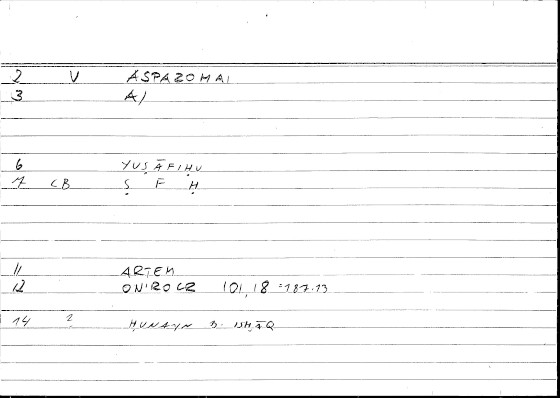 2 V ASPAZOMAI
3 A)
6 YUṢĀFIḤU
7 CB Ṣ F Ḥ
11 ARTEM
12 ONIROCR 101,18 =187.13
14 2 ḤUNAYN B. ISḤĀQ